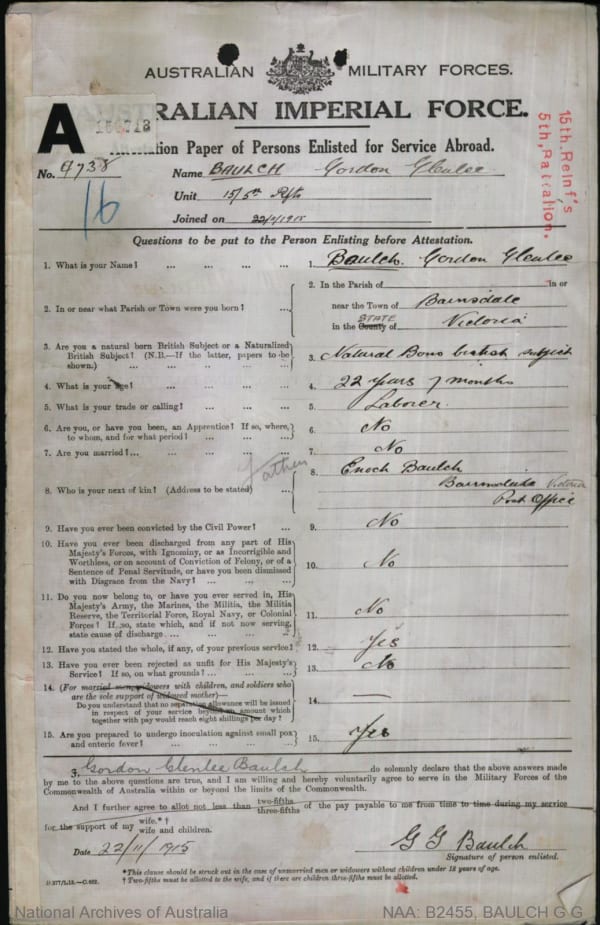 AUSTRALIAN MILITARY FORCES.
A
RALIAN IMPERIAL FORCE.
tation Paper of Persons Enlisted for Service Abroad.
15th Reinf's
5th Battalion.
No.
16
Name BAULCH Gordon Glenlee
Unit 15/5th Rfts
Joined on 22/11/1915
Questions to be put to the Person Enlisting before Attestation.
1. What is your Name? ... ... ... ... 1. Baulch. Gordon Glenlee
2. In or near what Parish or Town were you born? ...
2. In the Parish of in or
near the Town of Bairnsdale
in the County of STATE Victoria
3. Are you a natural born British Subject or a Naturalized
British Subject? (N.B.—If the latter, papers to be
shown.) ... ... ... ...
3. Natural Born british subject
4. What is your age? ... ... ... ... 4. 22 years 7 months
5. What is your trade or calling? ... ... ... 5. Laborer
6. Are you, or have you been, an Apprentice? If so, where,
to whom, and for what period? ... ... ...
6. No
7. Are you married? ... ... ... ... 7. No
Father
8. Who is your next of kin? (Address to be stated) ...
8. Enoch Baulch
Bairnsdale Victoria
Post Office
9. Have you ever been convicted by the Civil Power? ... 9. No
10. Have you ever been discharged from any part of His
Majesty's Forces, with Ignominy, or as Incorrigible and
Worthless, or on account of Conviction of Felony, or of a
Sentence of Penal Servitude, or have you been dismissed
with Disgrace from the Navy? ... ... ...
10. No
11. Do you now belong to, or have you ever served in, His
Majesty's Army, the Marines, the Militia, the Militia
Reserve, the Territorial Force, Royal Navy, or Colonial
Forces? If so, state which, and if not now serving,
state cause of discharge ... ... ... ...
11. No
12. Have you stated the whole, if any, of your previous service? 12. Yes
13. Have you ever been rejected as unfit for His Majesty's
Service? If so, on what grounds? ... ... ...
13. No
14. (For married men, widowers with children, and soldiers who
are the sole support of widowed mother)—
Do you understand that no separation allowance will be issued
in respect of your service beyond an amount which
together with pay would reach eight shillings per day?
14. —
15. Are you prepared to undergo inoculation against small pox
and enteric fever? ... ... ... ...
15. Yes
I, Gordon Glenlee Baulch do solemnly declare that the above answers made
by me to the above questions are true, and I am willing and hereby voluntarily agree to serve in the Military Forces of the
Commonwealth of Australia within or beyond the limits of the Commonwealth.
And I further agree to allot not less than two-fifths three-fifths of the pay payable to me from time to time during my service
for the support of my wife.*† wife and children.
Date 22/11/1915
G G Baulch
Signature of person enlisted.
*This clause should be struck out in the case of unmarried men or widowers without children under 18 years of age.
† Two-fifths must be allotted to the wife, and if there are children three-fifths must be allotted.
National Archives of Australia
NAA: B2455, BAULCH G G